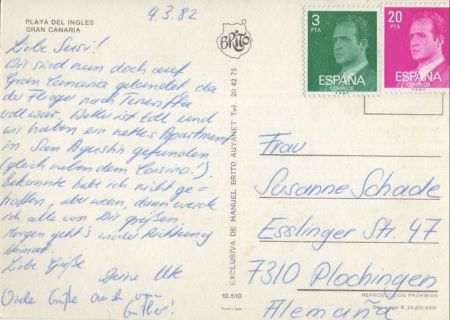 PLAYA DEL INGLES
GRAN CANARIA
9.3.82
Liebe Susi!
Wir sind nun doch auf
Gran Canaria gelandet, da
der Flieger nach Teneriffa
voll war. Wetter ist toll und
wir haben ein nettes Apartment
in San Agustin gefunden
(gleich neben dem Casino!).
Bekannte hab ich nicht ge=
troffen, aber wenn, dann werde
ich alle von Dir grüßen.
Morgen geht's wieder Richtung
Heimat.
Liebe Grüße
Deine Ute
Viele Grüße auch
BRITO
EXCLUSIVA DE MANUEL BRITO AUYANET Tel. 20 42 75
10.510
3
PTA
ESPAÑA
20
PTA
ESPAÑA
Frau
Susanne Schade
Esslinger Str. 47
7310 Plochingen
REPRODUCCION PROHIBIDA
Alemaña